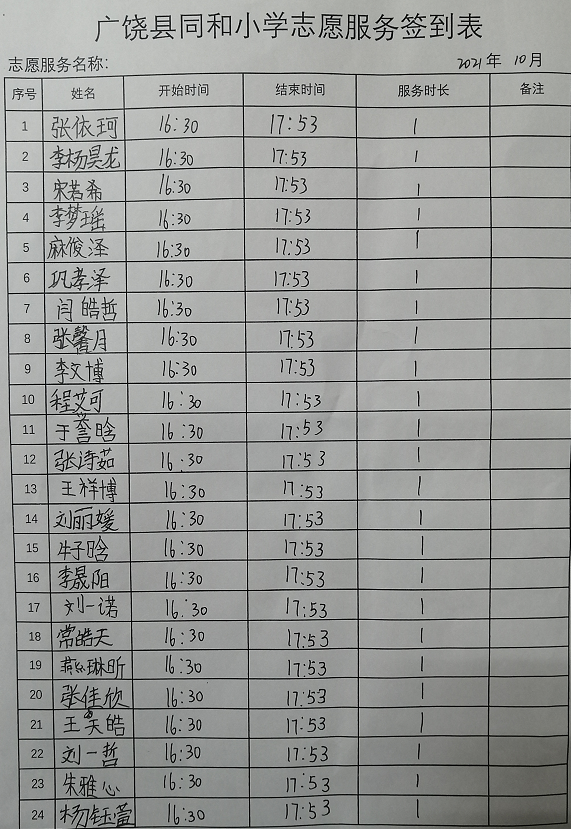 广饶县同和小学志愿服务签到表
志愿服务名称: 2021年 10月
序号 姓名 开始时间 结束时间 服务时长 备注
1 张依珂 16:30 17:53 1
2 李杨昊龙 16:30 17:53 1
3 宋茗希 16:30 17:53 1
4 李梦瑶 16:30 17:53 1
5 麻俊泽 16:30 17:53 1
6 巩孝泽 16:30 17:53 1
7 闫皓哲 16:30 17:53 1
8 张馨月 16:30 17:53 1
9 李文博 16:30 17:53 1
10 程艾可 16:30 17:53 1
11 于誉晗 16:30 17:53 1
12 张诗茹 16:30 17:53 1
13 王祥博 16:30 17:53 1
14 刘丽媛 16:30 17:53 1
15 牛子晗 16:30 17:53 1
16 李晟阳 16:30 17:53 1
17 刘一诺 16:30 17:53 1
18 常皓天 16:30 17:53 1
19 燕琳昕 16:30 17:53 1
20 张佳欣 16:30 17:53 1
21 王昊皓 16:30 17:53 1
22 刘一哲 16:30 17:53 1
23 朱雅心 16:30 17:53 1
24 杨钰萱 16:30 17:53 1